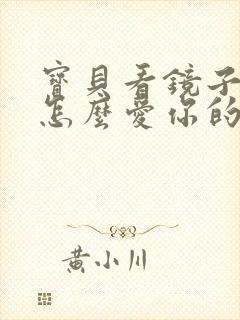 寶貝看鏡子
怎麼愛你的
黃小川